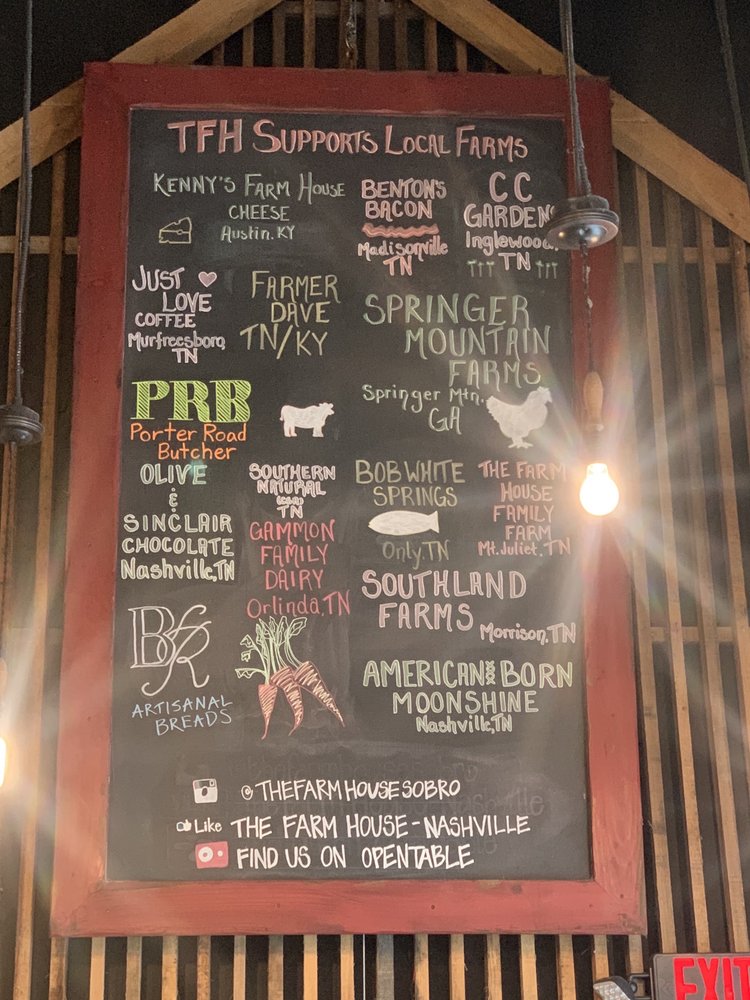 TFH SUPPORTS LOCAL FARMS
KENNY'S FARM HOUSE
CHEESE
Austin, KY
BENTON'S
BACON
Madisonville
TN
CC
GARDENS
Inglewood,
TN
JUST
LOVE
COFFEE
Murfreesboro,
TN
FARMER
DAVE
TN/KY
SPRINGER
MOUNTAIN
FARMS
Springer Mtn.
GA
PRB
Porter Road
Butcher
OLIVE
&
SINCLAIR
CHOCOLATE
Nashville,TN
SOUTHERN
NATURAL
TN
GAMMON
FAMILY
DAIRY
Orlinda,TN
BOB WHITE
SPRINGS
Only, TN
THE FARM
HOUSE
FAMILY
FARM
Mt. Juliet, TN
SOUTHLAND
FARMS
Morrison, TN
ARTISANAL
BREADS
AMERICAN BORN
MOONSHINE
Nashville,TN
@THEFARMHOUSESOBRO
Like THE FARM HOUSE-NASHVILLE
FIND US ON OPENTABLE
EXIT